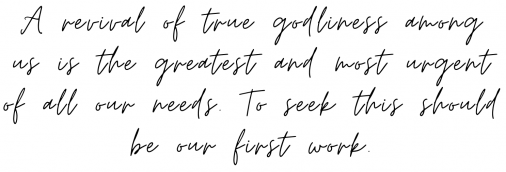 A revival of true godliness among
us is the greatest and most urgent
of all our needs. To seek this should
be our first work.